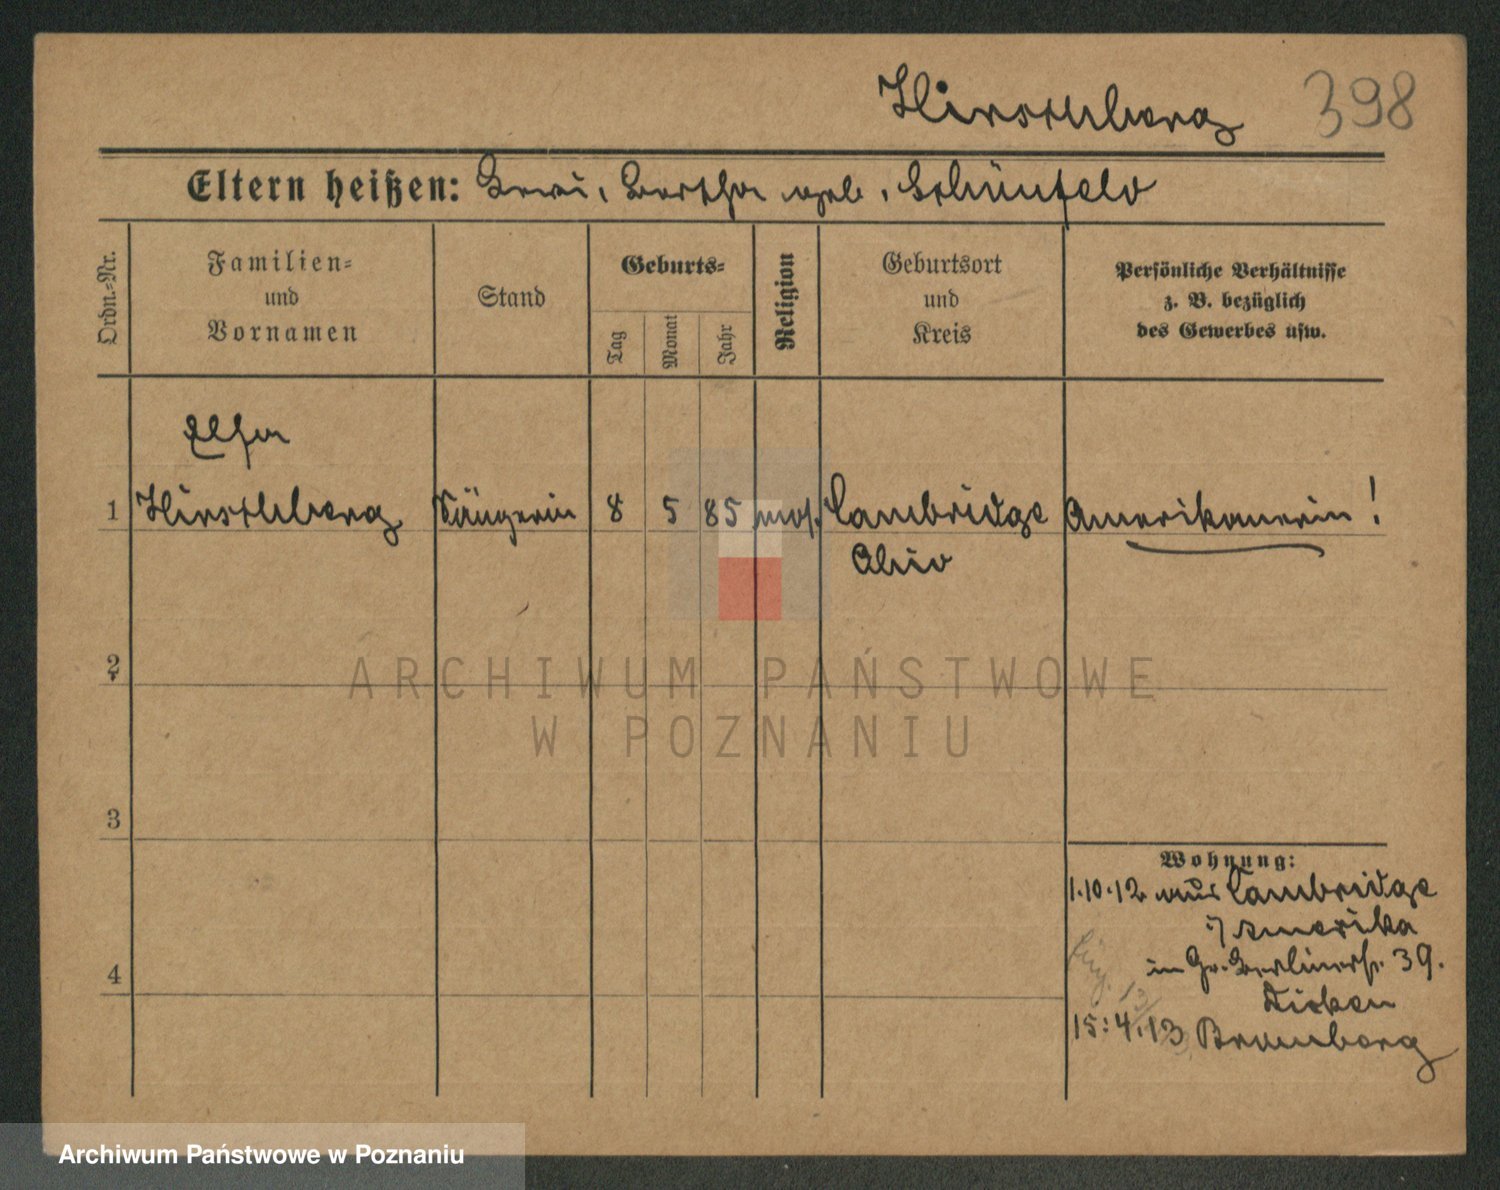 Hirschberg 398
Eltern heißen: Levi, Bertha geb. Schünfeld
Ordn.-Nr.
Familien-
und
Vornamen
Stand
Geburts-
Tag
Monat
Jahr
Religion
Geburtsort
und
Kreis
Persönliche Verhältnisse
z. B. bezüglich
des Gewerbes usw.
Elsa
1 Hirschberg Sängerin 8 5 85 mos. Cambridge Amerikanerin!
Ohio
2
3
4
Wohnung:
1.10.12 aus Cambridge
i/ Amerika
in Gr. Berlinerstr. 39.
15.4.13 Bromberg
ARCHIWUM PAŃSTWOWE
W POZNANIU
Archiwum Państwowe w Poznaniu